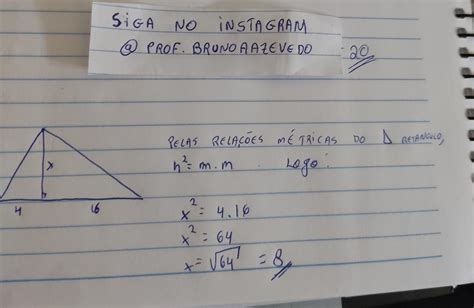 SIGA NO INSTAGRAM
@ PROF. BRUNOAAZEVEDO
20
PELAS RELAÇÕES MÉTRICAS DO Δ RETANGULO,
h² = m.m Logo:
x
4 16
x² = 4.16
x² = 64
x = √64 = 8